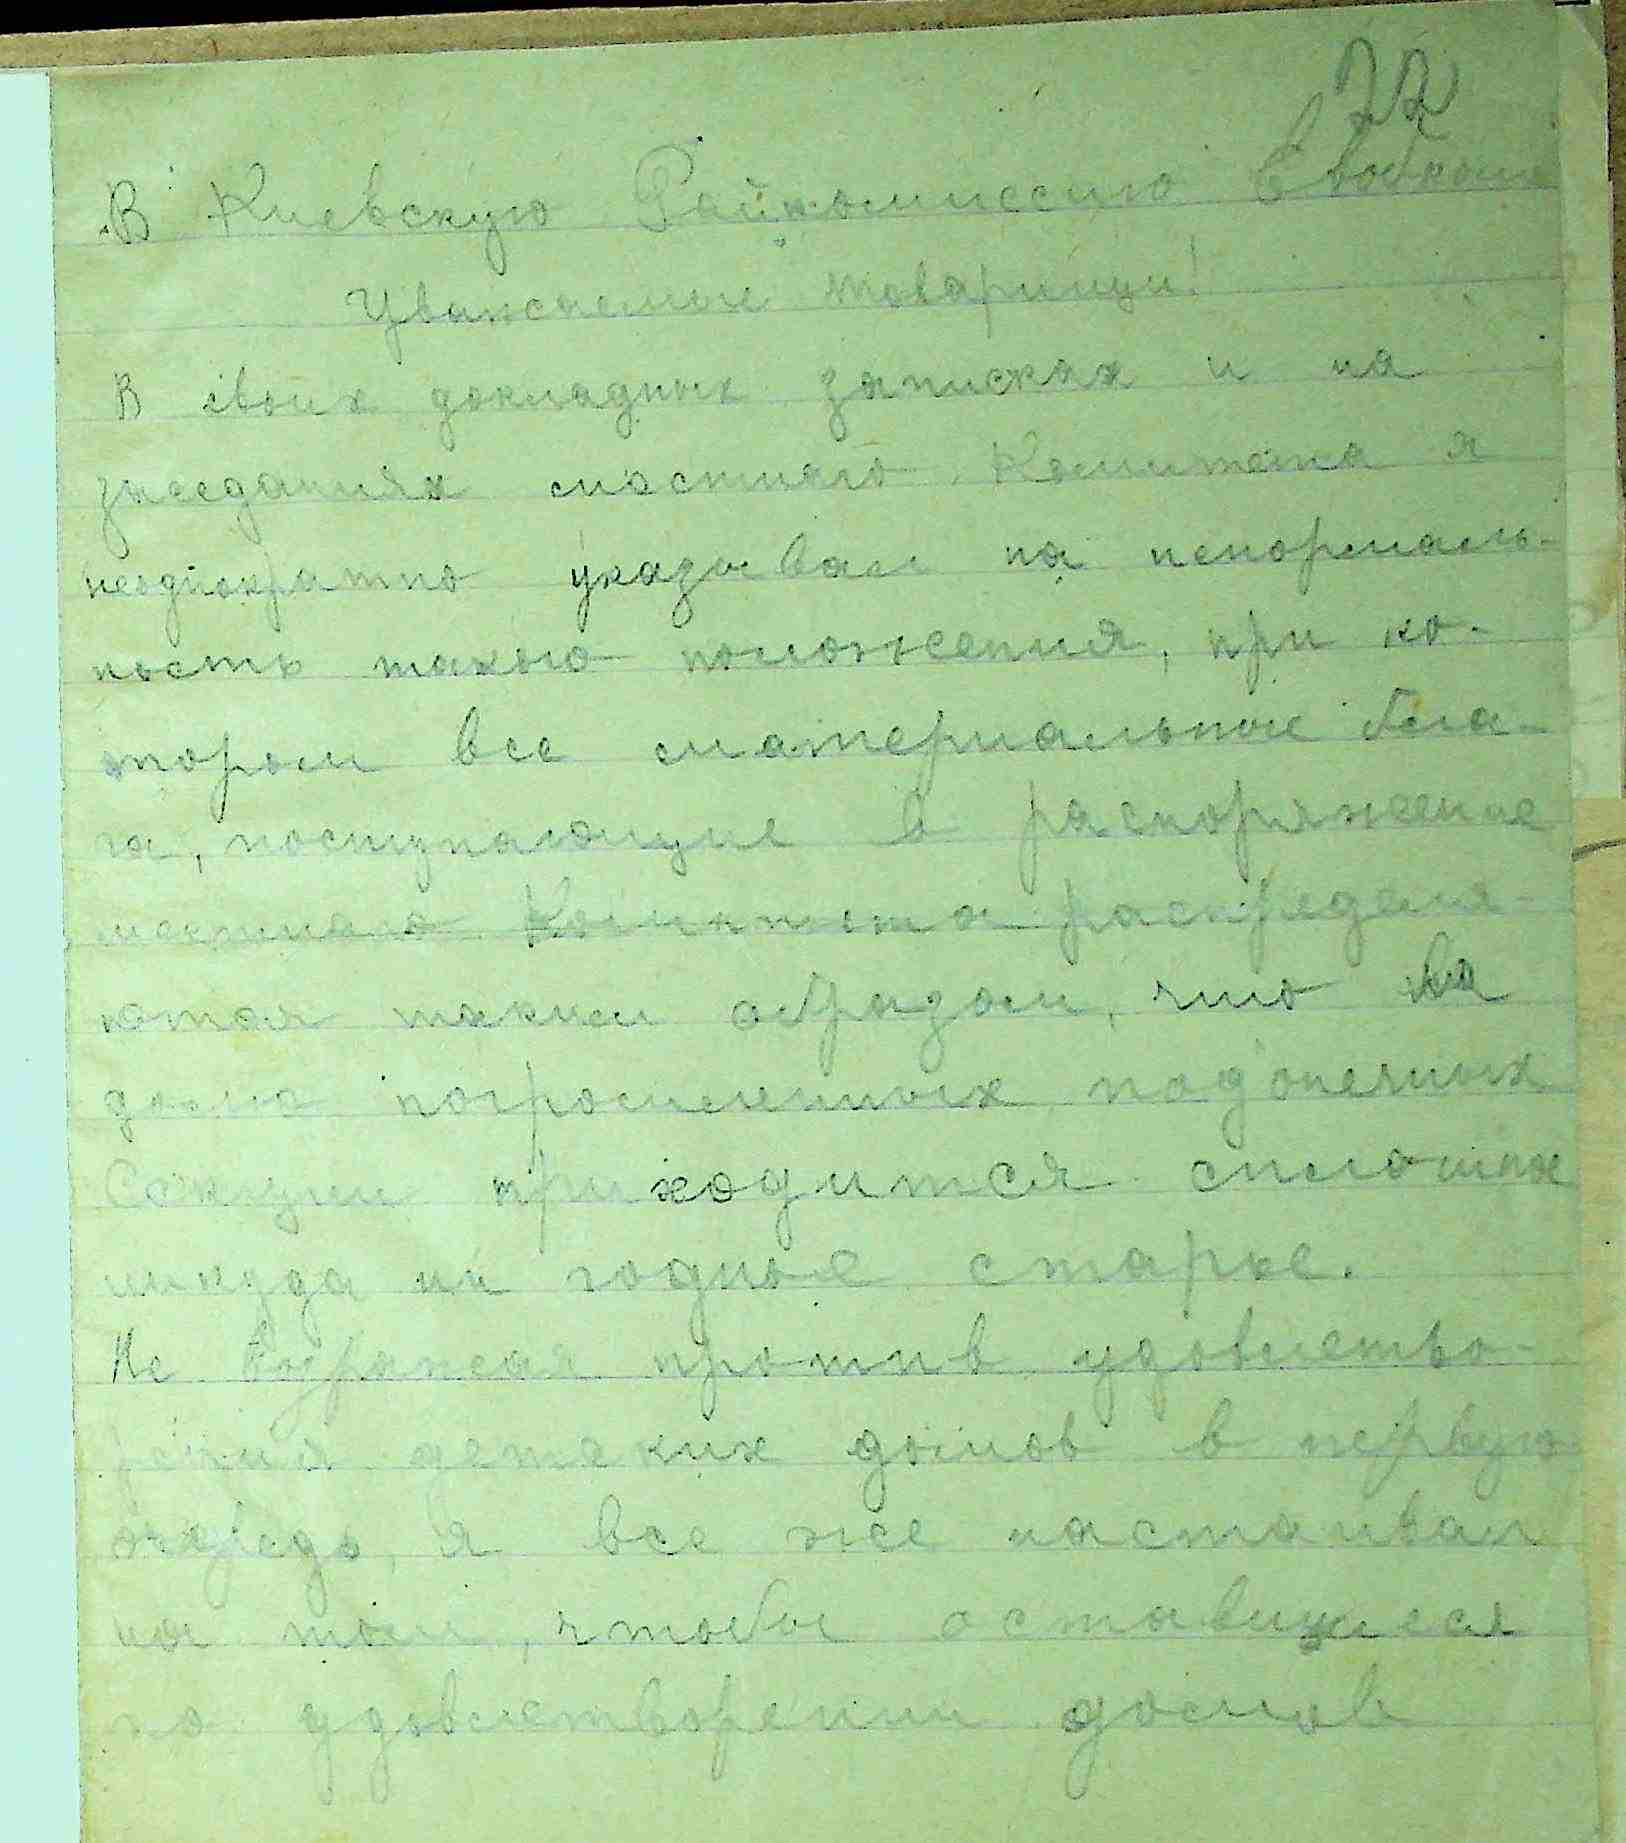 22
В Киевскую Райкомиссию Евобкома
Уважаемые товарищи!
В своих докладных записках и на
заседаниях местного Комитета я
неоднократно указывал на ненормаль-
ность такого положения, при ко-
тором все материальные бла-
га, поступающие в распоряжение
местного Комитета распределя-
ются таким образом, что на
долю погромленных подопечных
Секции приходится сплошное
никуда не годное старье.
Не возражая против удовлетво-
рения детских домов в первую
очередь, я все же настаивал
на том, чтобы оставшиеся
по удовлетворении домов